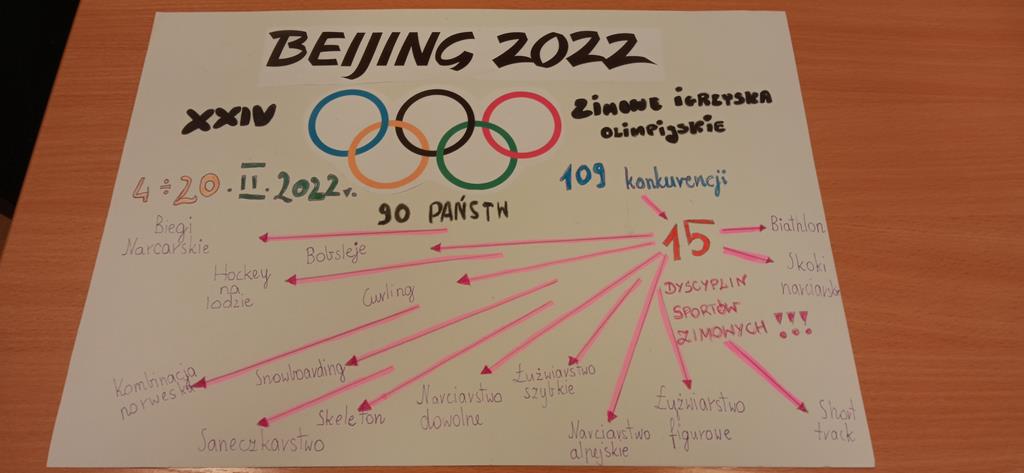 BEIJING 2022
XXIV
ZIMOWE IGRZYSKA
OLIMPIJSKIE
4 ÷ 20 . II . 2022r.
109 konkurencji
90 PAŃSTW
15
DYSCYPLIN
SPORTÓW
ZIMOWYCH !!!
Biegi
Narciarskie
Bobsleje
Hockey
na
lodzie
Curling
Biathlon
Skoki
narciarskie
Kombinacja
norweska
Snowboarding
Saneczkarstwo
Skeleton
Narciarstwo
dowolne
Łyżwiarstwo
szybkie
Narciarstwo
alpejskie
Łyżwiarstwo
figurowe
Short
track